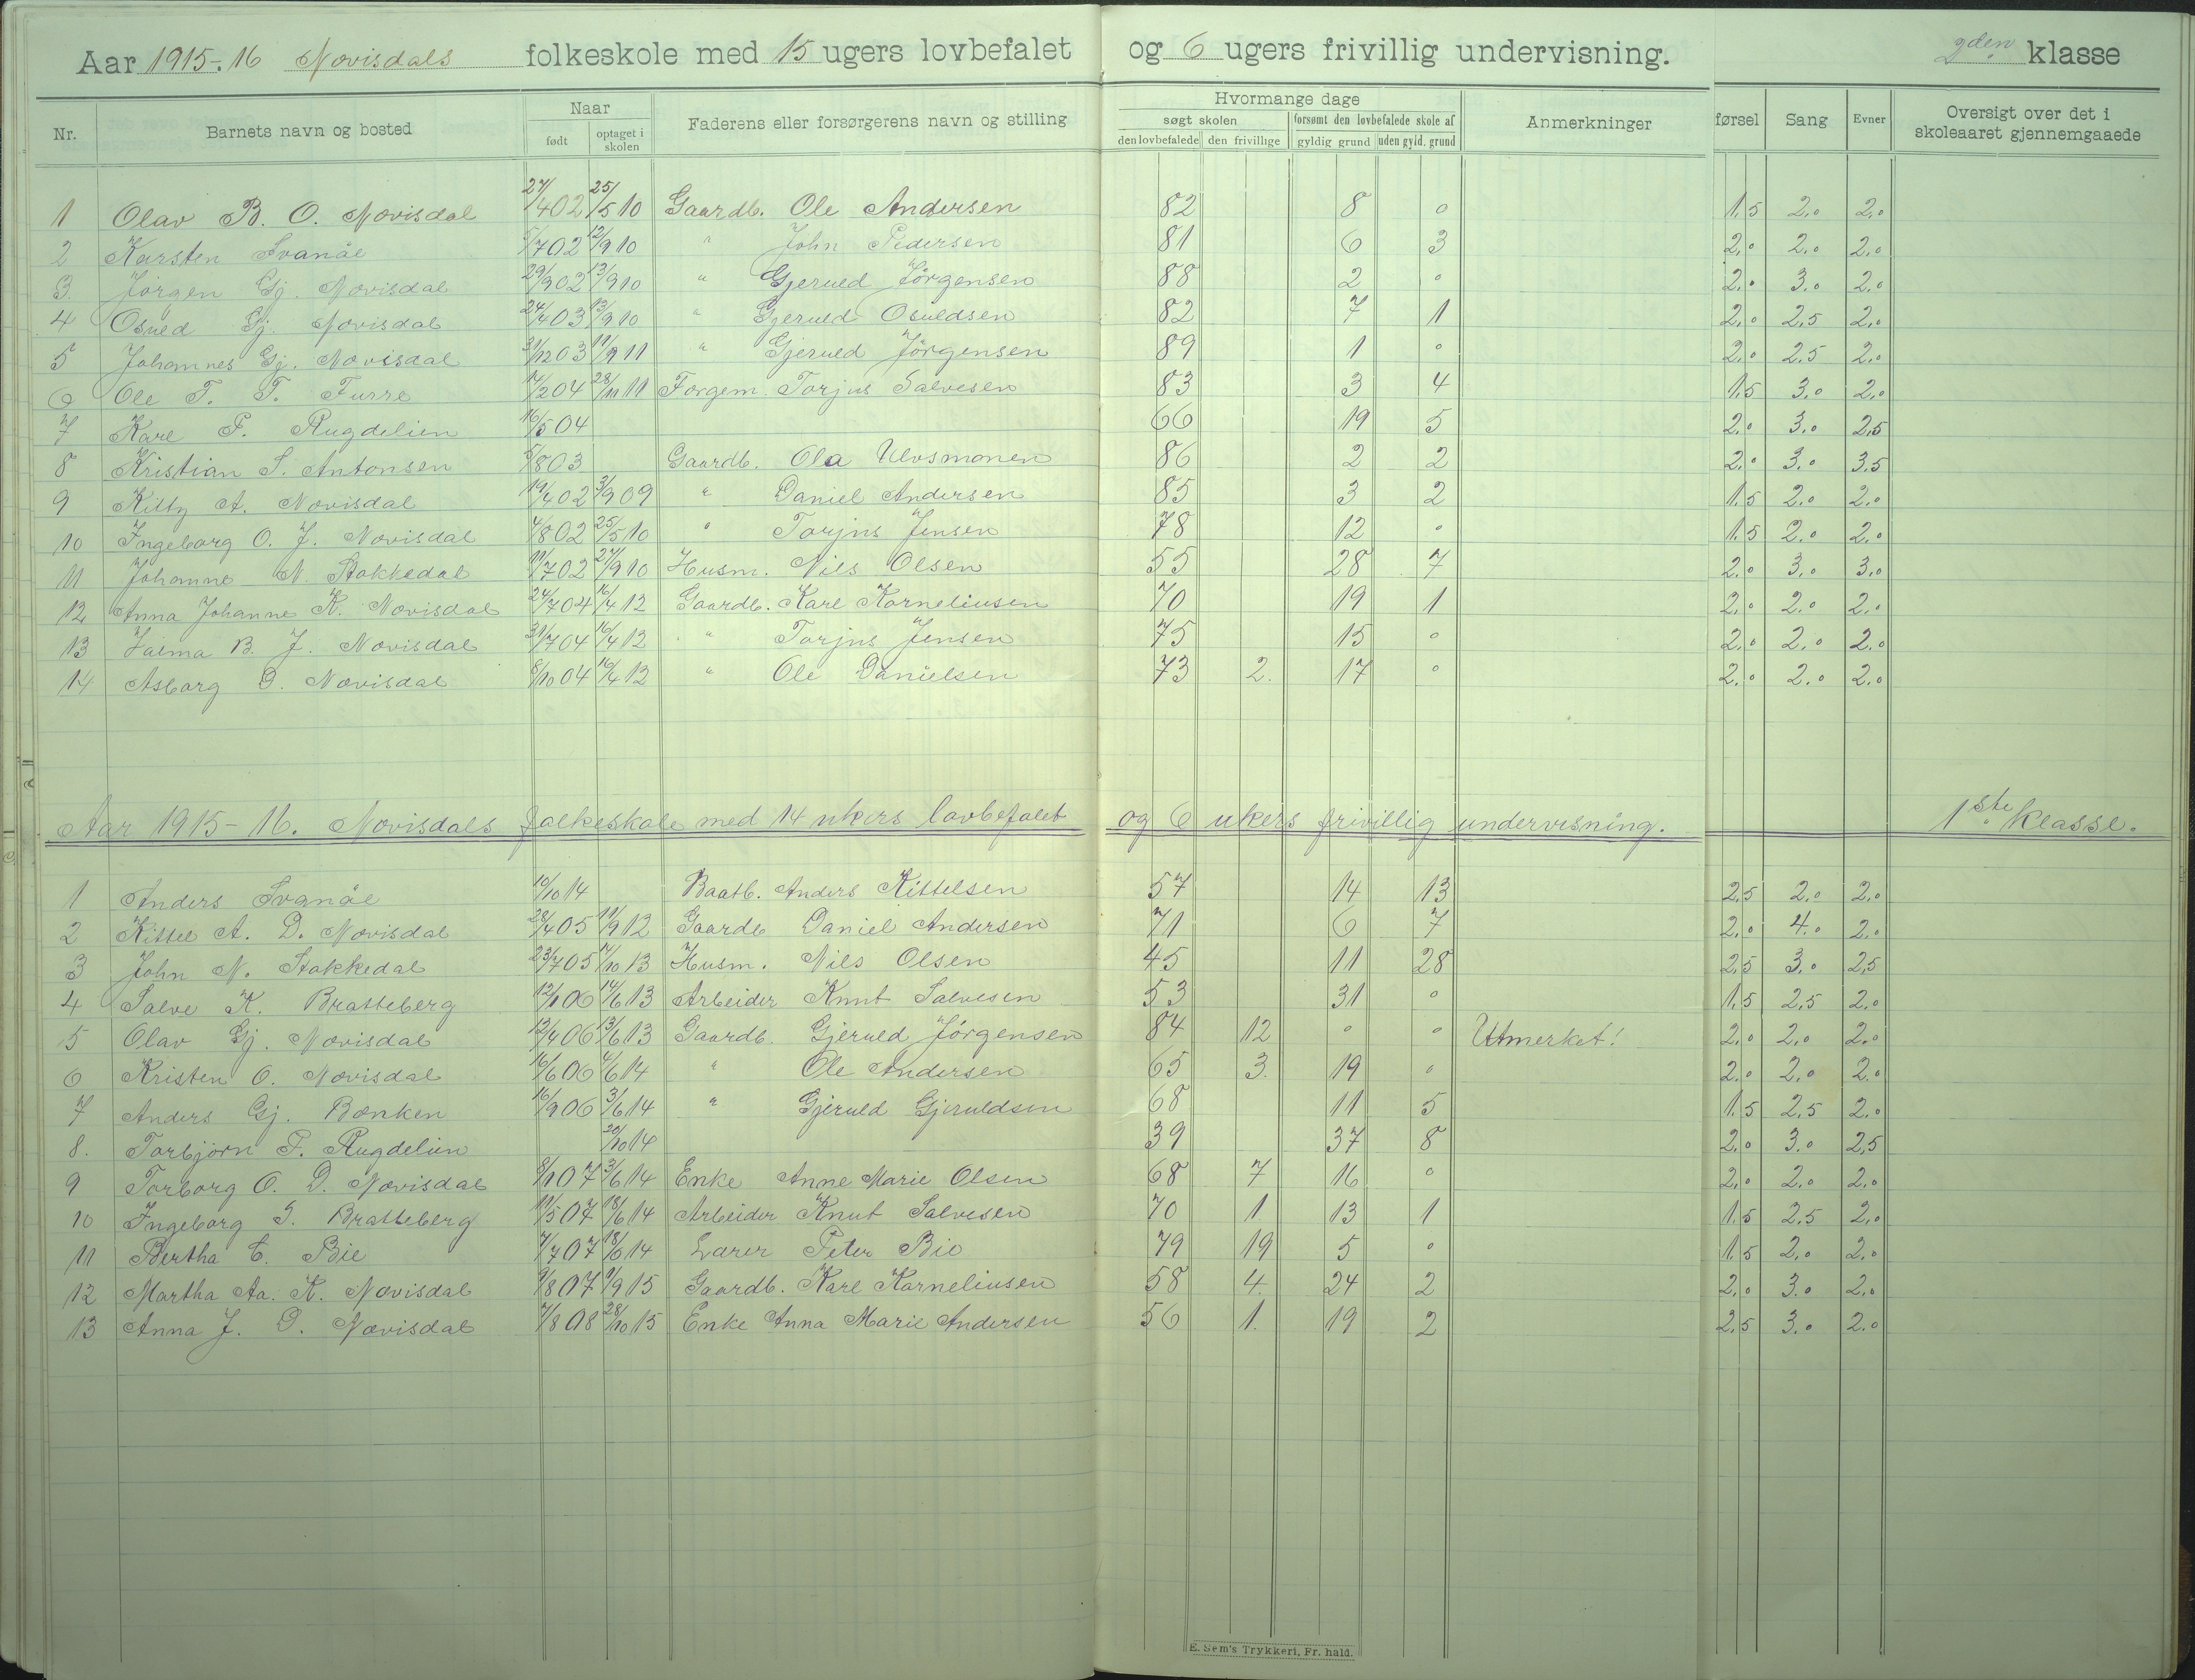 Aar 1915-16 Nævisdals folkeskole med 15 ugers lovbefalet og 6 ugers frivillig undervisning. 2den klasse
Nr. Barnets navn og bosted Naar født optaget i skolen Faderens eller forsørgerens navn og stilling Hvormange dage søgt skolen den lovbefalede den frivillige forsømt den lovbefalede skole af gyldig grund uden gyld. grund Anmerkninger førsel Sang Evner Oversigt over det i skoleaaret gjennemgaaede
1 Olav B. O. Nævisdal 27/4 02 25/5 10 Gaardb. Ole Andersen 82 8 0 1,5 2,0 2,0
2 Karsten Svanöe 5/7 02 12/9 10 " John Pedersen 81 6 3 2,0 2,0 2,0
3 Jørgen Gj. Nævisdal 29/9 02 13/9 10 " Gjeruld Jørgensen 88 2 0 2,0 3,0 2,0
4 Osuld Gj. Nævisdal 24/4 03 13/9 10 " Gjeruld Osuldsen 82 7 1 2,0 2,5 2,0
5 Johannes Gj. Nævisdal 31/12 03 11/9 11 " Gjeruld Jørgensen 89 1 0 2,0 2,5 2,0
6 Ole T. T. Furre 14/2 04 28/11 11 Forgem. Torjus Salvesen 83 3 4 1,5 3,0 2,0
7 Kare P. Rugdelien 16/5 04 66 19 5 2,0 3,0 2,5
8 Kristian S. Antonsen 5/8 03 Gaardb. Ola Ulvsmonen 86 2 2 2,0 3,0 3,5
9 Kitty A. Nævisdal 19/4 02 3/9 09 " Daniel Andersen 85 3 2 1,5 2,0 2,0
10 Ingeborg O. J. Nævisdal 4/8 02 25/5 10 " Torjus Jensen 78 12 0 1,5 2,0 2,0
11 Johanne N. Stokkedal 11/7 02 27/9 10 Husm. Nils Olsen 55 28 7 2,0 3,0 3,0
12 Anna Johanne K. Nævisdal 24/7 04 16/4 12 Gaardb. Karl Korneliusen 70 19 1 2,0 2,0 2,0
13 Jalma B. J. Nævisdal 31/7 04 16/4 12 " Torjus Jensen 75 15 0 2,0 2,0 2,0
14 Asborg D. Nævisdal 8/10 04 16/4 12 " Ole Danielsen 73 2. 17 0 2,0 2,0 2,0
Aar 1915-16. Nævisdals folkeskole med 14 ukers lovbefalet og 6 ukers frivillig undervisning. 1ste klasse.
1 Anders Svanöe 10/10 14 Baatb. Anders Kittelsen 57 14 13 2,5 2,0 2,0
2 Kittel A. D. Nævisdal 28/4 05 11/9 12 Gaardb Daniel Andersen 71 6 7 2,0 4,0 2,0
3 John N. Stokkedal 23/7 05 14/10 13 Husm. Nils Olsen 45 11 28 2,5 3,0 2,5
4 Salve K. Bratteberg 12/1 06 14/6 13 Arbeider Knut Salvesen 53 31 0 1,5 2,5 2,0
5 Olav Gj. Nævisdal 12/4 06 13/6 13 Gaardb. Gjeruld Jørgensen 84 12 0 0 Utmerket! 2,0 2,0 2,0
6 Kristen O. Nævisdal 16/6 06 4/6 14 " Ole Andersen 65 3. 19 0 2,0 2,0 2,0
7 Anders Gj. Bænken 16/9 06 3/6 14 " Gjeruld Gjeruldsen 68 11 5 1,5 2,5 2,0
8. Torbjörn P. Rugdelien 20/10 14 39 37 8 2,0 3,0 2,5
9 Torborg O. D. Nævisdal 8/1 07 3/6 14 Enke Anne Marie Olsen 68 7 16 0 2,0 2,0 2,0
10 Ingeborg S. Bratteberg 11/5 07 18/6 14 Arbeider Knut Salvesen 70 1. 13 1 1,5 2,5 2,0
11 Bertha C. Bie 7/7 07 18/6 14 Lærer Peter Bie 79 19 5 0 1,5 2,0 2,0
12 Martha Aa. K. Nævisdal 9/8 07 9/9 15 Gaardb. Karl Korneliusen 58 4. 24 2 2,0 3,0 2,0
13 Anna J. D. Nævisdal 7/8 08 28/10 15 Enke Anna Marie Andersen 56 1. 19 2 2,5 3,0 2,0
E. Sem's Trykkeri, Fr.hald.